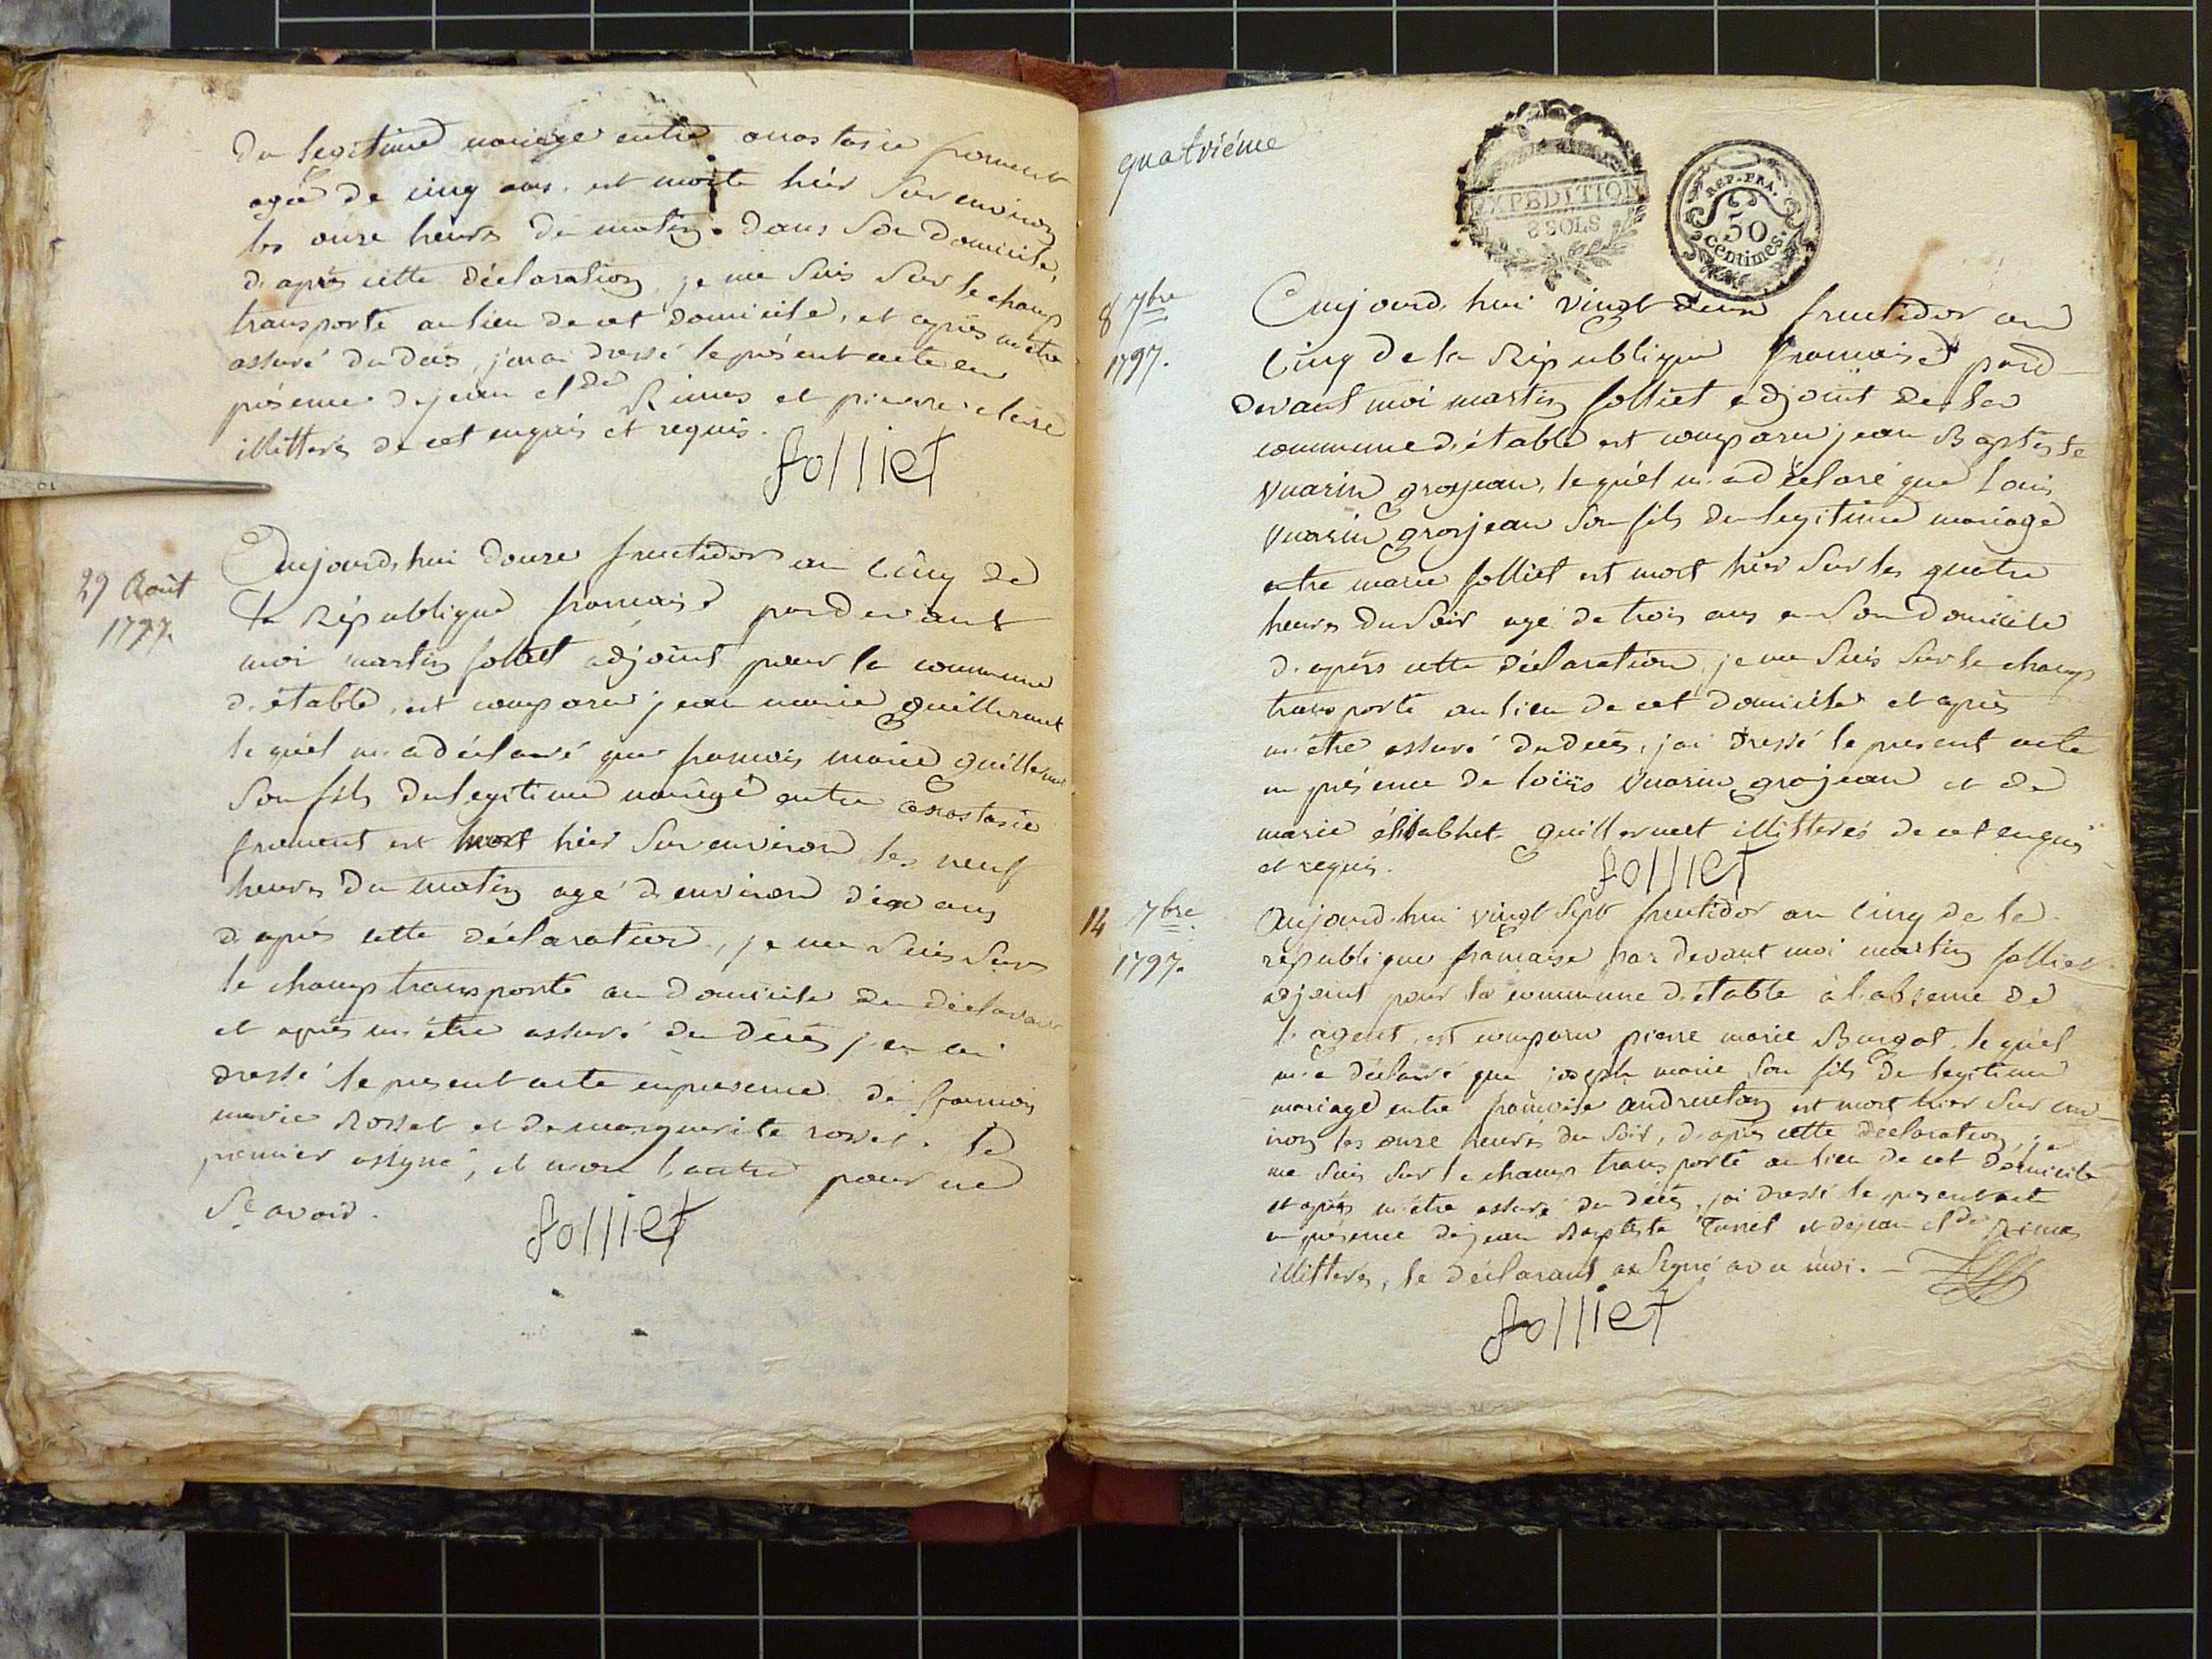 du legitime mariage entre anastasie froment
agée de cinq ans. est morte hier sur environ
les onze heures du matin. dans son domicile,
d'après cette déclaration, je me suis sur le champ
transporté au lieu de cet domicile, et après m'être
assuré du decès, j'en ai dressé le présent acte en
présence de jean cl.de Rimes et pierre claire
illitterés de cet enquis et requis.
folliet
29 Août
1797.
Aujourd'hui douze fructidor an cinq de
la République françoise pardevant
moi martin folliet adjoint pour la commune
d'étable, est comparu jean marie guillermet
lequel m'a déclaré que françois marie guillermet
son fils du legitime mariage entre anastasie
froment est mort hier sur environ les neuf
heures du matin agé d'environ dix ans
d'après cette déclaration, je me suis sur
le champ transporté au domicile du déclarant
et après m'être assuré du decès j'en ai
dressé le present acte en presence de françois
marie Rosset et de marguerite rosset. le
premier assigné, et non l'autre pour ne
sçavoir.
folliet
quatriéme
EXPEDITION
8 SOLS
REP. FRA.
50
centimes.
8 7bre
1797.
Aujourd'hui vingt deux fructidor an
cinq de la République françoise pard
devant moi martin folliet adjoint de la
commune d'étable est comparu jean Baptiste
vuarin grosjean, lequel m'a déclaré que Louis
vuarin grosjean son fils du legitime mariage
entre marie folliet est mort hier sur les quatre
heures du soir agé de trois ans en son domicile
d'après cette déclaration, je me suis sur le champ
transporté au lieu de cet domicile et après
m'être assuré du decès, j'ai dressé le present acte
en présence de loüis vuarin grojean et de
marie élisabhet guillermet illitterés de cet enquis
et requis.
folliet
14 7bre
1797.
Aujourd'hui vingt sept fructidor an cinq de la
république françoise par devant moi martin folliet
adjoint pour la commune d'étable à l'absence de
l'agent, est comparu pierre marie Burgot lequel
m'a déclaré que joseph marie son fils du legitime
mariage entre françoise andrevetan est mort hier sur env-
iron les onze heures du soir, d'après cette déclaration, je
me suis sur le champ transporté au lieu de cet domicile
et après m'être assuré du decès, j'ai dressé le present acte
en présence de jean Baptiste et de jean cl.de Rimes
illitterés, le déclarant a signé avec moi.
folliet